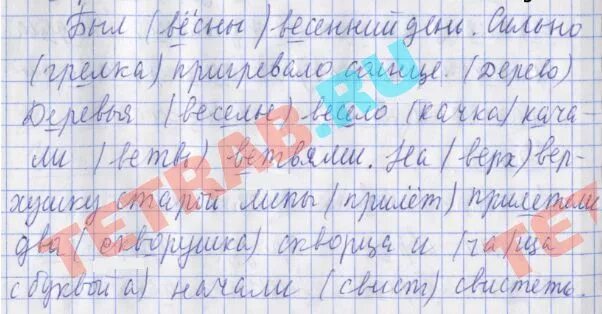 Был (вёсны) весенний день. Сильно
(грелка) пригревало солнце. (Дерево)
Деревья (веселье) весело (качка) кача-
ли (ветвь) ветвями. На (верх) вер-
хушку старой липы (прилёт) прилетели
два (скворушка) скворца и (ча/ща
с буквой а) начали (свист) свистеть.
TETRAB.RU
TETRAB.RU